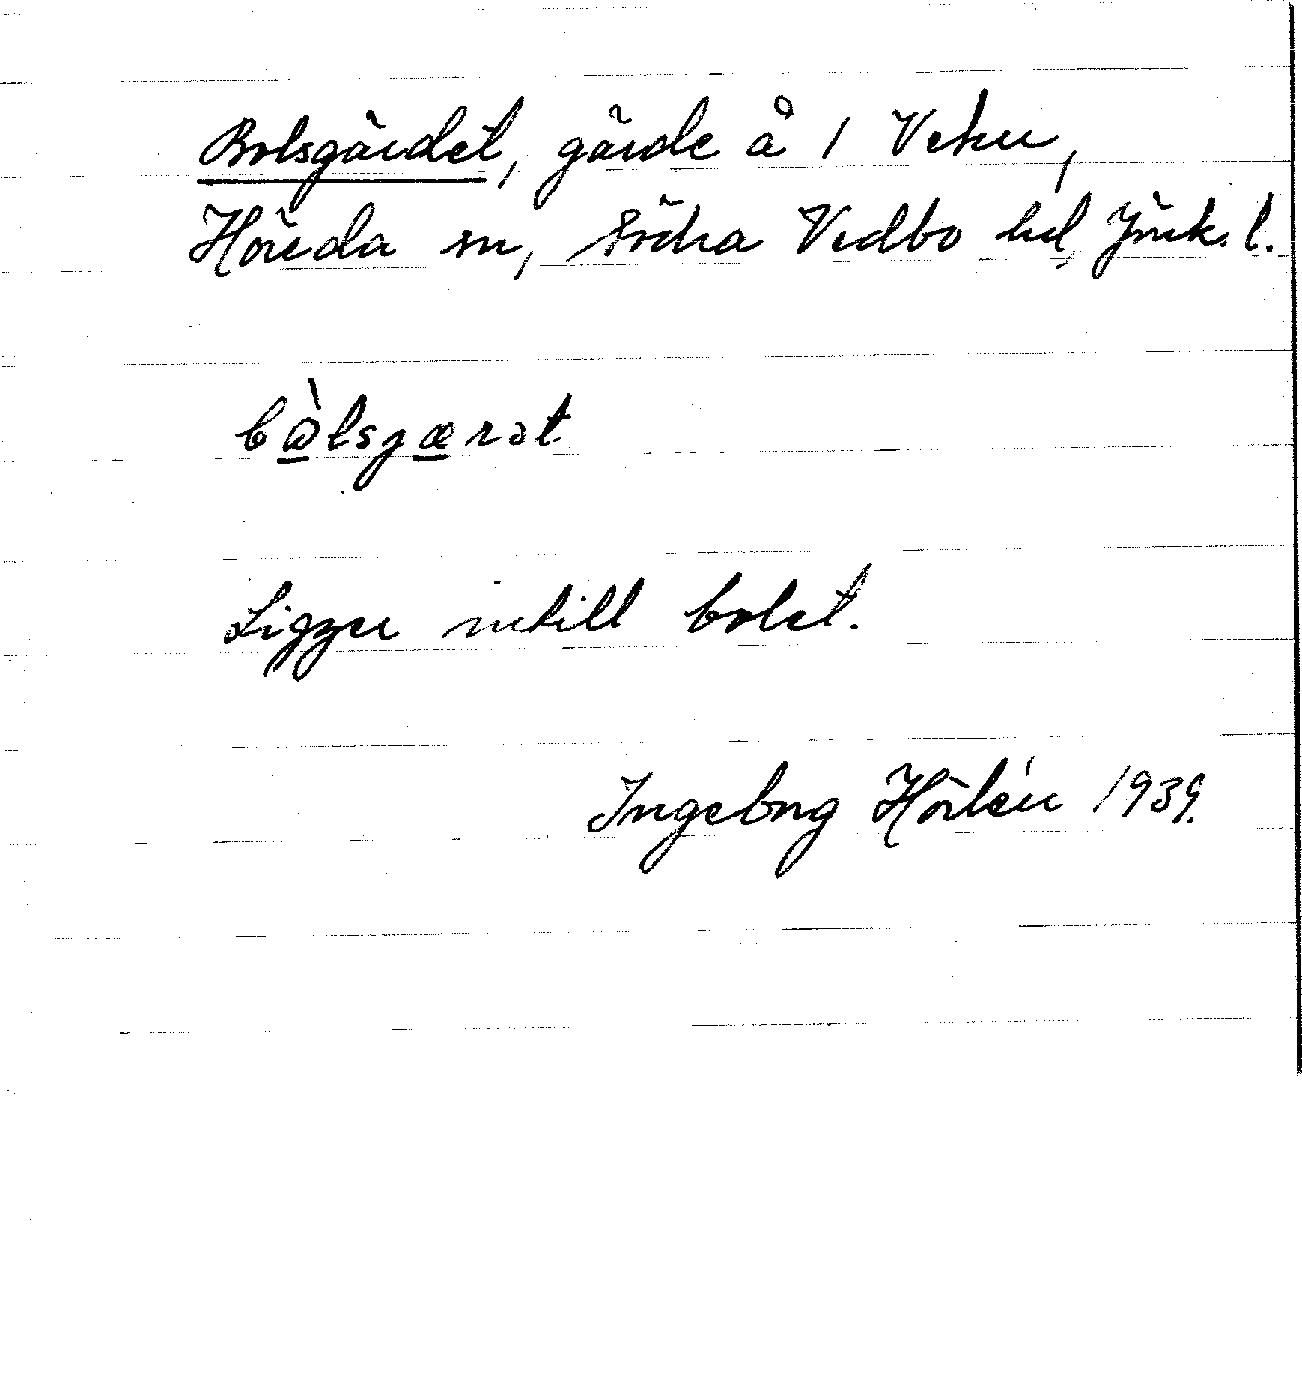 Bolsgärdet, gärde å 1 Veker,
Höreda sn, Södra Vedbo hd, Jönk. l.
bòlsgærət
Ligger intill bolet.
Ingeborg Hörlén 1939.